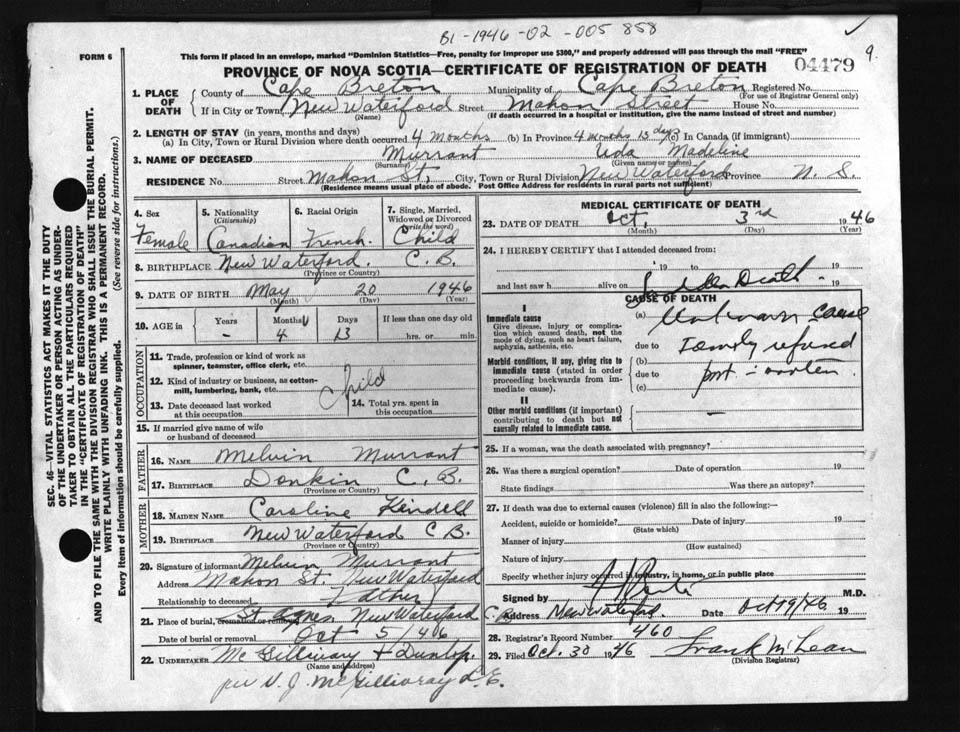 B1-1946-02-005858
FORM 6
This form if placed in an envelope, marked "Dominion Statistics—Free, penalty for improper use $300," and properly addressed will pass through the mail "FREE"
9.
04479
PROVINCE OF NOVA SCOTIA—CERTIFICATE OF REGISTRATION OF DEATH
1. PLACE OF DEATH
County of Cape Breton Municipality of Cape Breton Registered No.
(For use of Registrar General only)
If in City or Town New Waterford Street Mahon Street House No.
(Name) (If death occurred in a hospital or institution, give the name instead of street and number)
2. LENGTH OF STAY (in years, months and days)
(a) In City, Town or Rural Division where death occurred 4 months (b) In Province 4 months 13 days (c) In Canada (if immigrant)
3. NAME OF DECEASED Murrant Uda Madeline
(Surname) (Given name or names)
RESIDENCE No. Street Mahon St. City, Town or Rural Division New Waterford Province N. S.
(Residence means usual place of abode. Post Office Address for residents in rural parts not sufficient)
4. Sex Female
5. Nationality (Citizenship) Canadian
6. Racial Origin French.
7. Single, Married, Widowed or Divorced (write the word) Child
8. BIRTHPLACE New Waterford. C. B.
(Province or Country)
9. DATE OF BIRTH May 20 1946
(Month) (Day) (Year)
10. AGE in Years Months Days If less than one day old
- 4 13 hrs. or min.
OCCUPATION
11. Trade, profession or kind of work as spinner, teamster, office clerk, etc.
12. Kind of industry or business, as cotton-mill, lumbering, bank, etc. Child
13. Date deceased last worked at this occupation
14. Total yrs. spent in this occupation
15. If married give name of wife or husband of deceased
FATHER
16. NAME Melvin Murrant
17. BIRTHPLACE Donkin C. B.
(Province or Country)
MOTHER
18. MAIDEN NAME Caroline Kendell
19. BIRTHPLACE New Waterford C B.
(Province or Country)
20. Signature of informant Melvin Murrant
Address Mahon St. New Waterford
Relationship to deceased Father
21. Place of burial, cremation or removal St Agnes New Waterford
Date of burial or removal Oct 5/46
22. UNDERTAKER McGillivary & Dunlop.
(Name and address)
per N. J. McGillivray L. E.
MEDICAL CERTIFICATE OF DEATH
23. DATE OF DEATH Oct. 3rd 1946
(Month) (Day) (Year)
24. I HEREBY CERTIFY that I attended deceased from:
19 to 19
and last saw h alive on Sudden Death - 19
CAUSE OF DEATH
I
Immediate cause
Give disease, injury or complication which caused death, not the mode of dying, such as heart failure, asphyxia, asthenia, etc.
(a) Unknown cause
due to Family refused
Morbid conditions, if any, giving rise to immediate cause (stated in order proceeding backwards from immediate cause).
(b)
due to post-mortem
(c)
II
Other morbid conditions (if important) contributing to death but not causally related to immediate cause.
25. If a woman, was the death associated with pregnancy?
26. Was there a surgical operation? Date of operation 19
State findings Was there an autopsy?
27. If death was due to external causes (violence) fill in also the following:—
Accident, suicide or homicide? Date of injury 19
(State which)
Manner of injury
(How sustained)
Nature of injury
Specify whether injury occurred in industry, in home, or in public place
Signed by M.D.
C.B. Address New Waterford. Date Oct 19/46 19
28. Registrar's Record Number 460
29. Filed Oct. 30 1946 Frank McLean
(Division Registrar)
SEC. 46—VITAL STATISTICS ACT MAKES IT THE DUTY
OF THE UNDERTAKER OR PERSON ACTING AS UNDER-
TAKER TO OBTAIN ALL THE PARTICULARS REQUIRED
IN THE "CERTIFICATE OF REGISTRATION OF DEATH"
AND TO FILE THE SAME WITH THE DIVISION REGISTRAR WHO SHALL ISSUE THE BURIAL PERMIT.
WRITE PLAINLY WITH UNFADING INK. THIS IS A PERMANENT RECORD.
Every item of information should be carefully supplied. (See reverse side for instructions.)